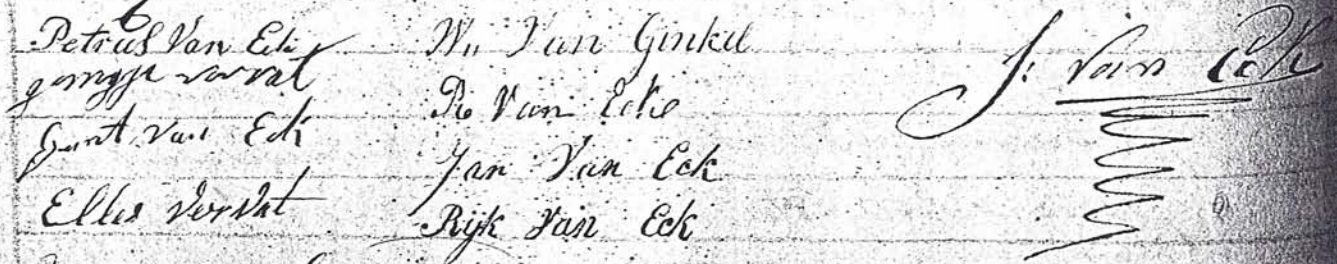 Petrus Van Eck
vervat
Gerrit Van Eck
Elles VervAt
Wn Van Ginkel
Van Ecke
Jan Van Eck
Rijk Van Eck
J: van Eck